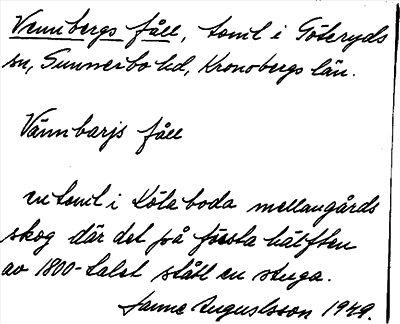 Vennbergs fåll, tomt i Göteryds
sn, Sunnerbo hd, Kronobergs län.
Vännbarjs fåll
en tomt i Löta boda mellangårds
skog där det på första hälften
av 1800-talet stått en stuga.
Janne Augustsson 1949.